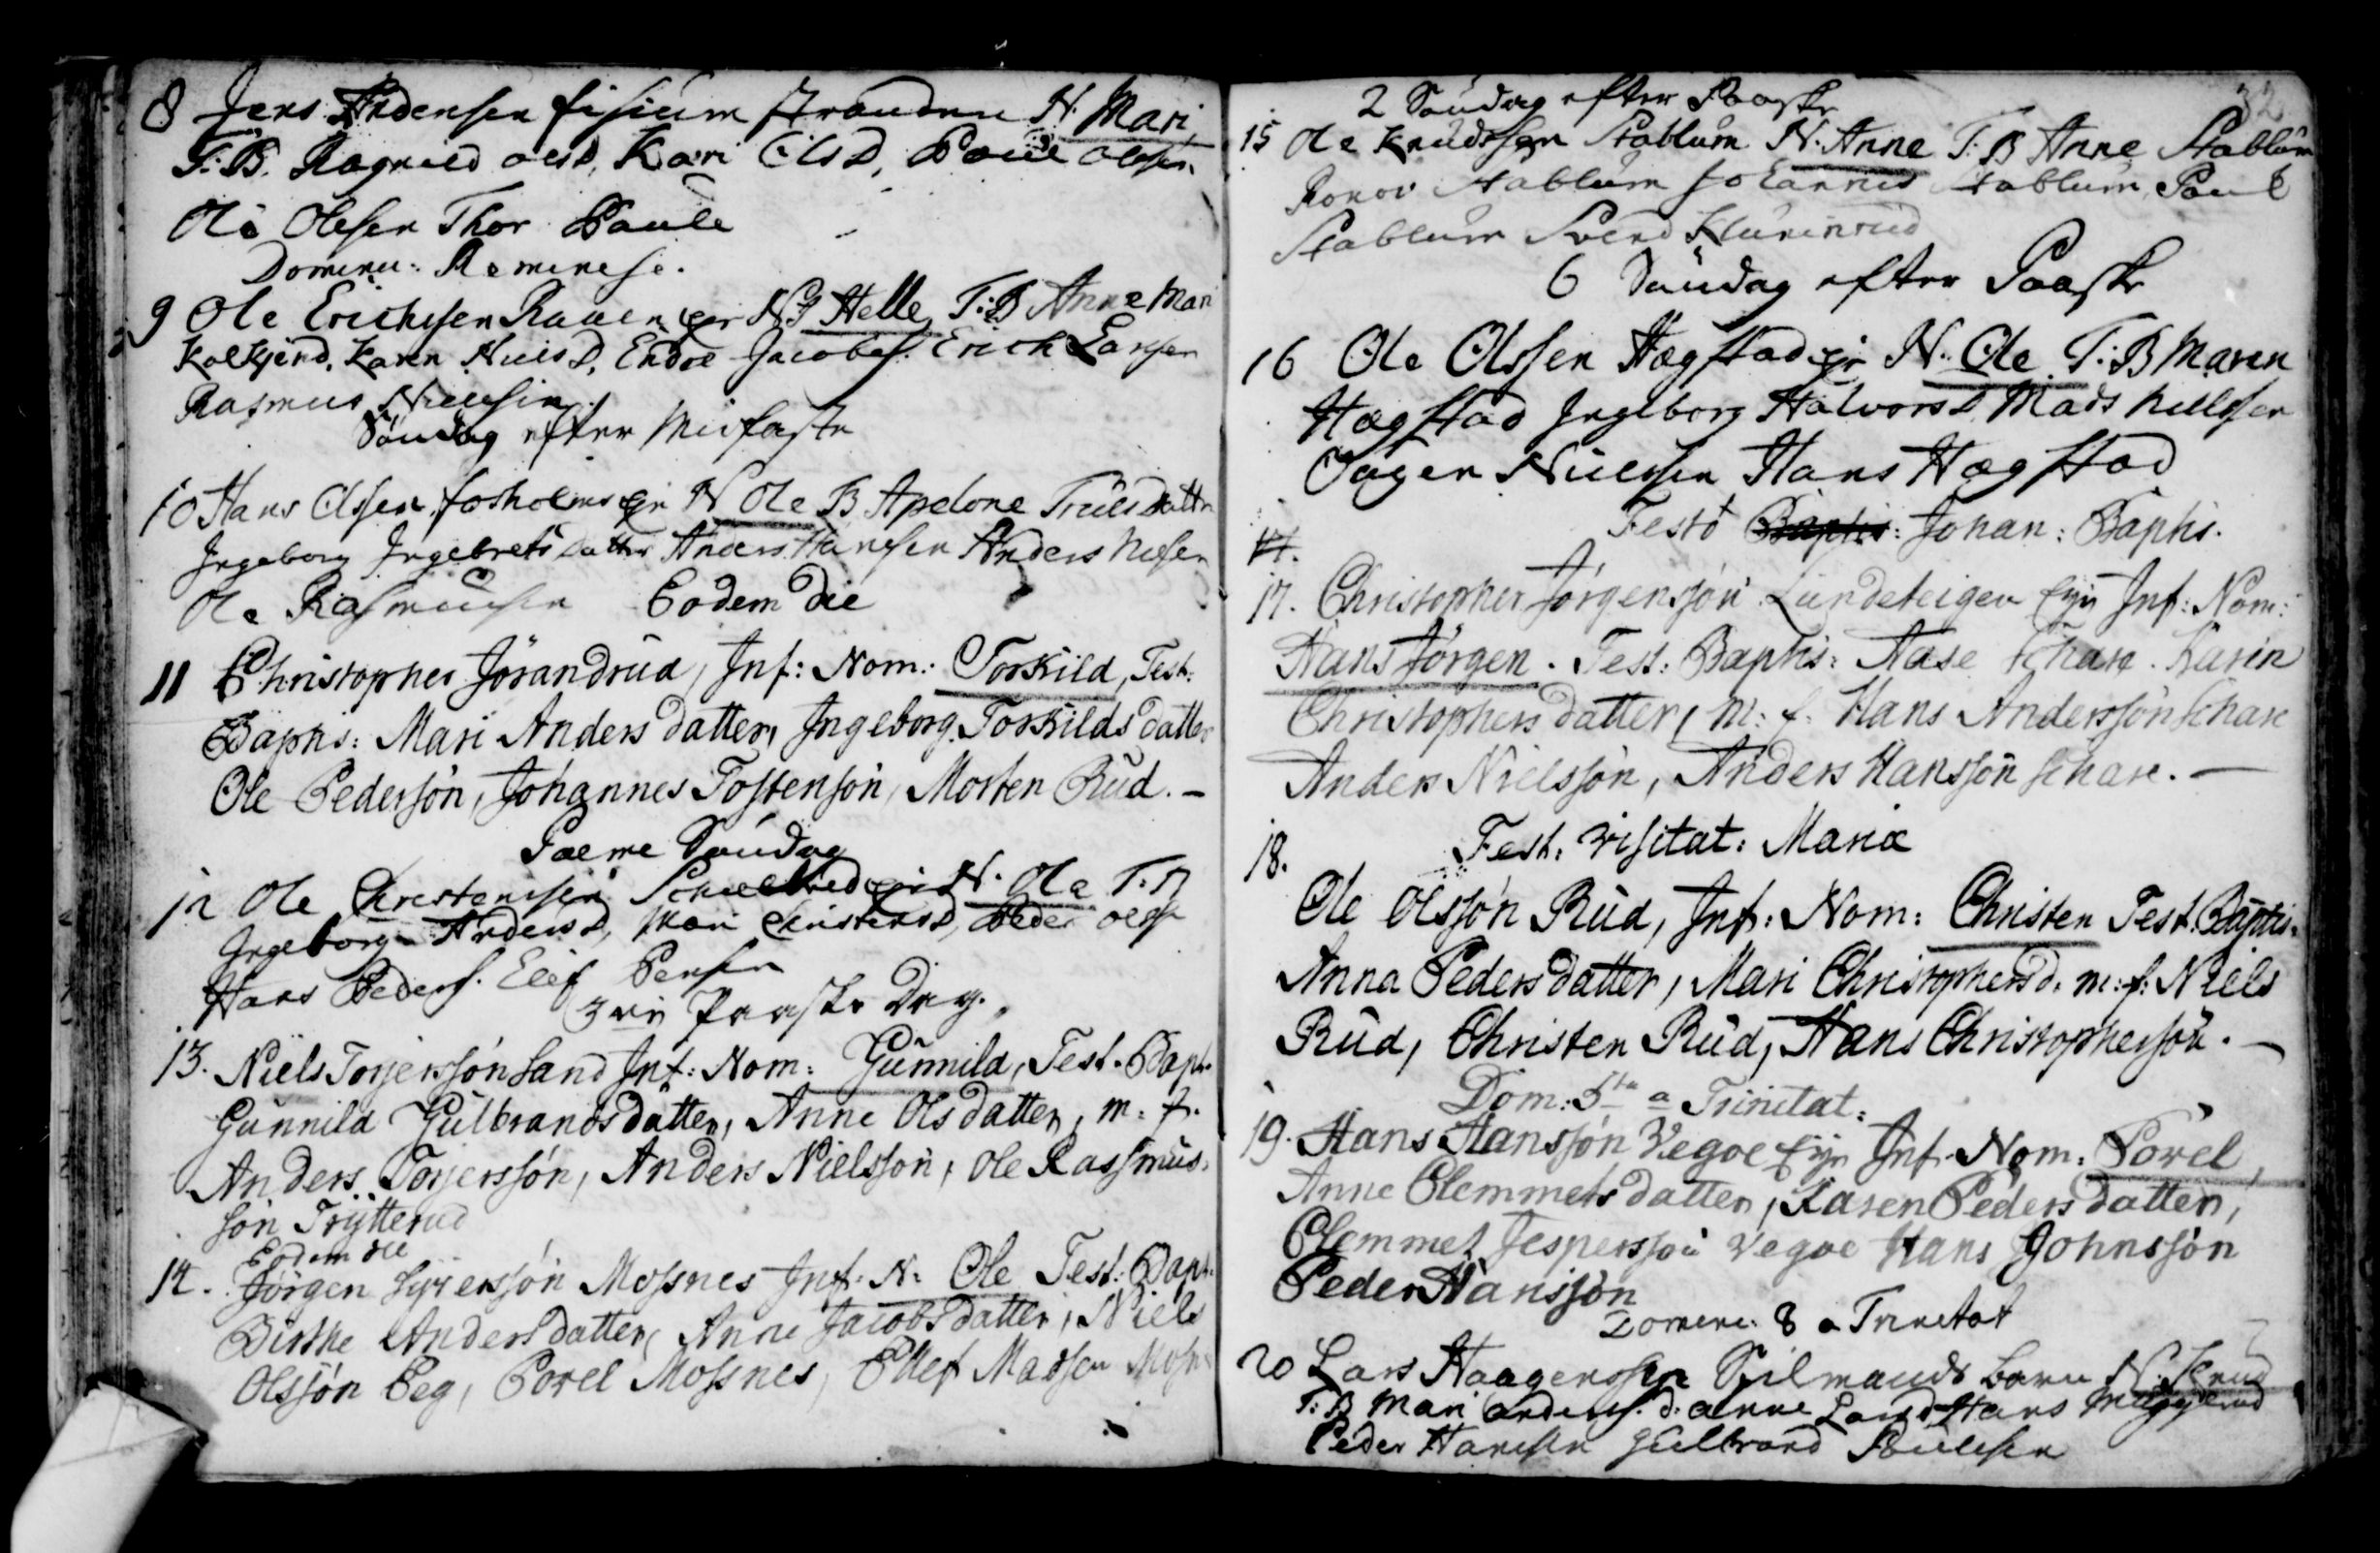 8 Jens Andensen fisium stranden N. Mari
T: B. Ragnild olsd, Kari Olsd, Poul olesen
Ole Olesen Thor Poule
Domini: Reminese.
9 Ole Erichsen Rauen gr N Helle T: B Anne Mari
Kolkjend, Karen Niels d, Endre Jacobs. Erich Larsen
Rasmus Nielsen
Søndag efter Midfaste
10 Hans Olssen fosholms ejr N Ole B Apelone Truls datter
Ingeborg Ingebrets datter Anders Hansen Anders Nielsen
Ole Rasmusen Eodem die
11 Christopher Jörandrud, Inf: Nom: Torkild, Test:
Baptis: Mari Anders datter, Ingeborg Torkilds datter
Ole Pedersön, Johannes Tostensön, Morten Rud. –
Palme Søndag
12 Ole Christensen N. Ole T: B
Ingeborg Anders d, Mari Christens d, Peder ols
Hans Peders. Elef Pensen
3die Paaske Dag.
13. Niels Torjerssön Sand Inf: Nom: Gunnild, Test. Bapt
Gunnild Gulbrands datter, Anne Ols datter, m: f.
Anders Torjerssön, Anders Nielssön, Ole Rassmus-
sön Trytterud
Eodem die
14. Jörgen Syverssön Mossnes Inf. N: Ole Test: Bapt:
Birthe Anders datter, Anne Jacobs datter, Niels
Olssön Eeg, Povel Mossnes, Ellef Madsen Mosn
32
2 Søndag efter Paaske
15 Ole Knudssen Stablum N. Anne T: B Anne Stablum
Ronov Stablum Johannes Stablum, Poul
Stablum Svend Klunenrud
6 Søndag efter Paaske
16 Ole Olssen Hægstad ejr N. Ole T: B Maren
Hægstad Ingeborg Halvors d Mads Nielssen
Aagen Nielssen Hans Hægstad
Festo Baptis: Johan: Baptis.
17.
17. Christopher Jörgenssön Lundeteigen Eyn Inf: Nom:
Hans Jörgen. Test: Baptis: Aase Schare. Karin
Christophers datter, m: f. Hans Anderssön Schare
Anders Nielssön, Anders Hanssön Schare. –
18. Fest: visitat: Mariæ
Ole Olssön Rud, Inf: Nom: Christen Test. Baptis:
Anna Peders datter, Mari Christophersd. m: f: Niels
Rud, Christen Rud, Hans Christophersön. –
Dom: 5ta a Trinitat:
19. Hans Hanssön Vegoe Eyn Inf. Nom. Povel,
Anne Clemmets datter, Karen Peders datter,
Clemmet Jesperssön Vegoe Hans Johnssön
Peder Hanssön
Domini. 8 a Trinitat
20 Lars Haagenssen Spilmands barn N. Knud
T: B Mari Anders. d. anne Land Hans Muggerud
Peder Hansen Gulbrand Poulsen